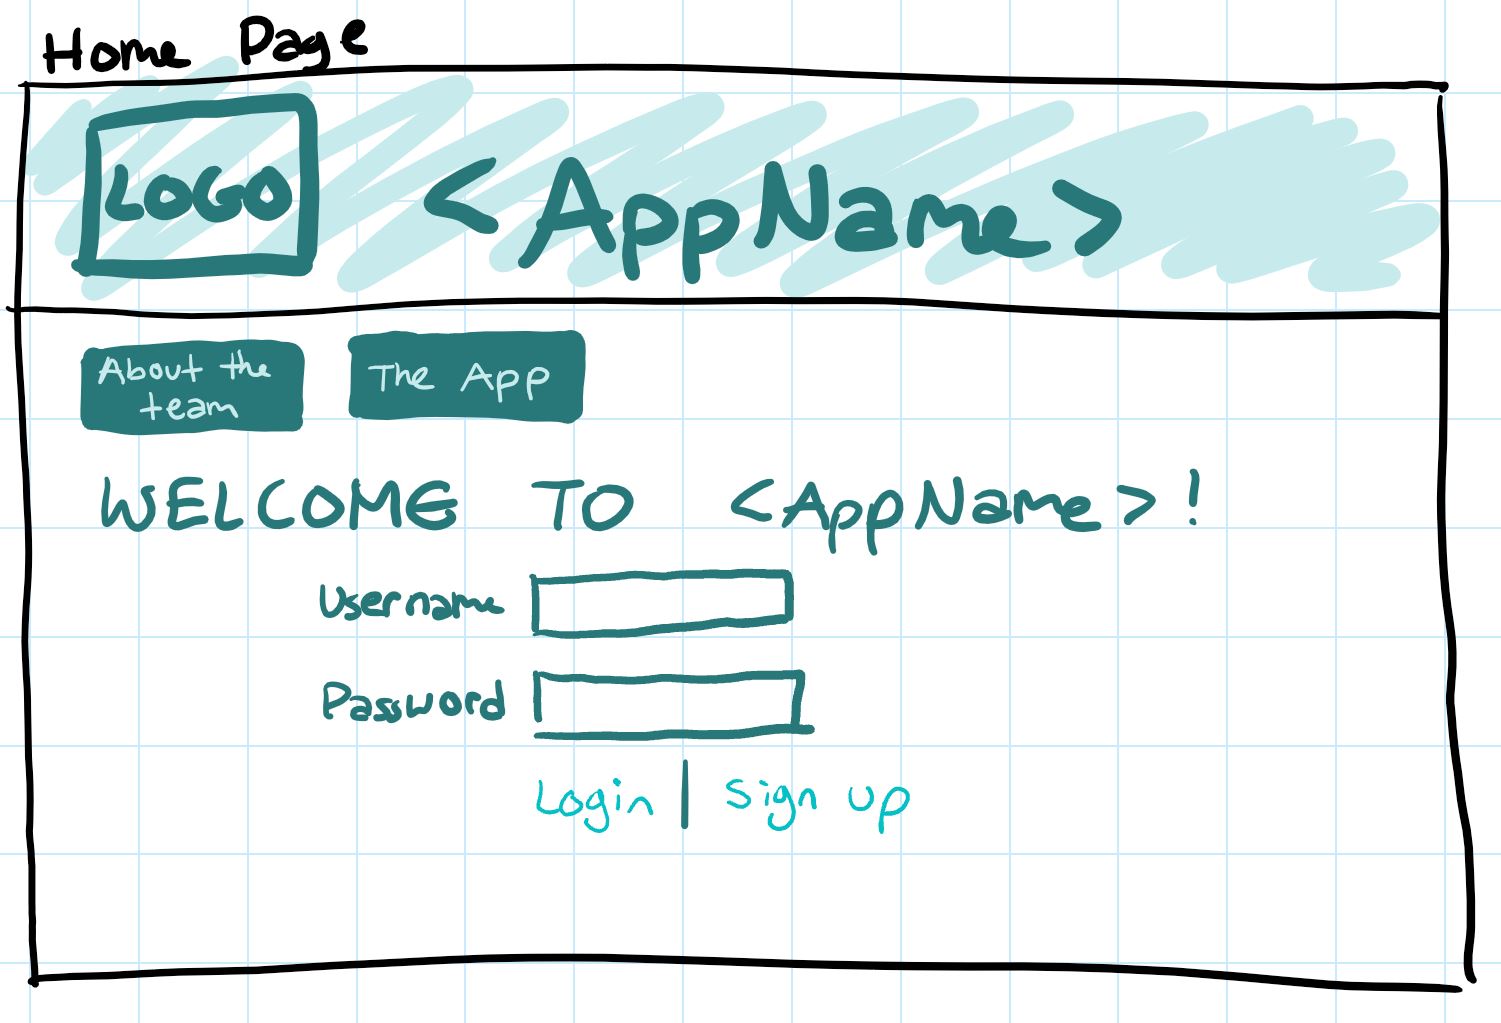 Home Page
LOGO
<AppName>
About the
team
The App
WELCOME TO <AppName>!
Username
Password
Login | Sign up